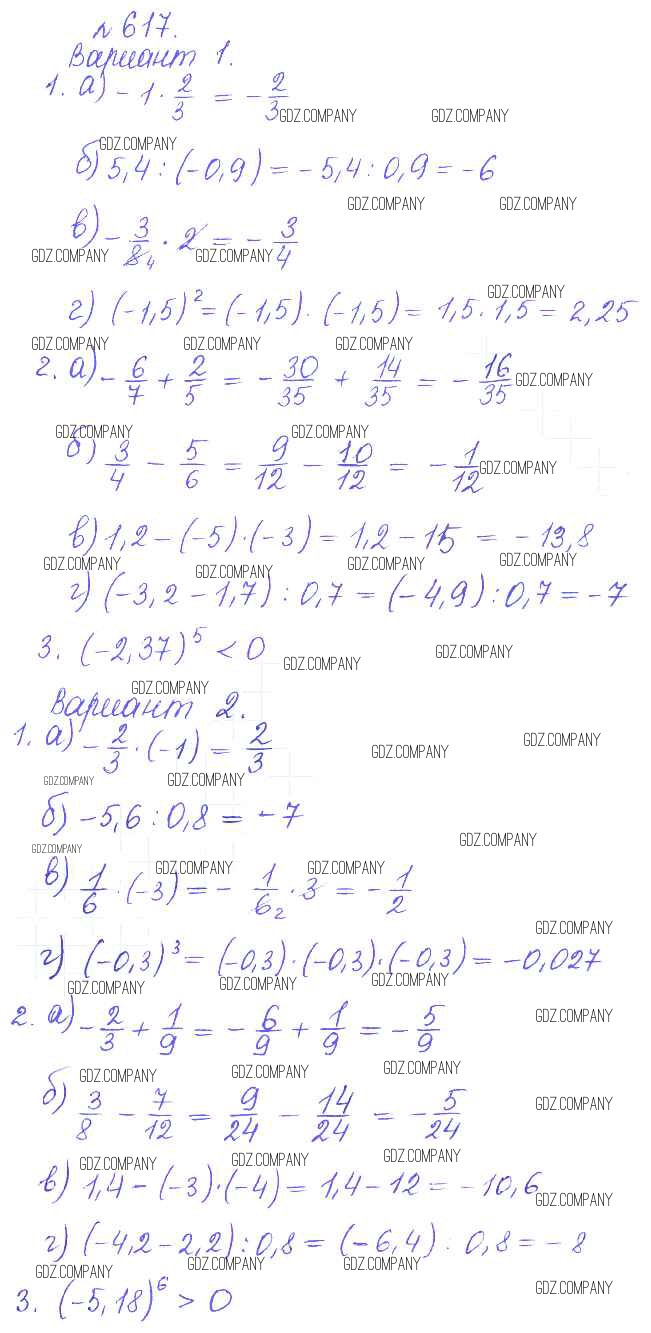 № 617.
Вариант 1.
1. а) - 1 · 2/3 = - 2/3
GDZ.COMPANY GDZ.COMPANY
GDZ.COMPANY
б) 5,4 : (-0,9) = - 5,4 : 0,9 = -6
GDZ.COMPANY GDZ.COMPANY
в) - 3/8 4 · 2 = - 3/4
GDZ.COMPANY GDZ.COMPANY
GDZ.COMPANY
г) (-1,5)² = (-1,5) · (-1,5) = 1,5 · 1,5 = 2,25
GDZ.COMPANY GDZ.COMPANY GDZ.COMPANY
2. а) - 6/7 + 2/5 = - 30/35 + 14/35 = - 16/35
GDZ.COMPANY
GDZ.COMPANY GDZ.COMPANY
б) 3/4 - 5/6 = 9/12 - 10/12 = - 1/12
GDZ.COMPANY
в) 1,2 - (-5) · (-3) = 1,2 - 15 = - 13,8
GDZ.COMPANY GDZ.COMPANY GDZ.COMPANY GDZ.COMPANY
г) (-3,2 - 1,7) : 0,7 = (-4,9) : 0,7 = -7
3. (-2,37)⁵ < 0
GDZ.COMPANY GDZ.COMPANY
GDZ.COMPANY
Вариант 2.
1. а) - 2/3 · (-1) = 2/3
GDZ.COMPANY GDZ.COMPANY
GDZ.COMPANY GDZ.COMPANY
б) -5,6 : 0,8 = -7
GDZ.COMPANY
GDZ.COMPANY GDZ.COMPANY GDZ.COMPANY
в) 1/6 · (-3) = - 1/6 2 · 3 = - 1/2
GDZ.COMPANY
г) (-0,3)³ = (-0,3) · (-0,3) · (-0,3) = -0,027
GDZ.COMPANY GDZ.COMPANY GDZ.COMPANY
2. а) - 2/3 + 1/9 = - 6/9 + 1/9 = - 5/9
GDZ.COMPANY
GDZ.COMPANY GDZ.COMPANY GDZ.COMPANY
б) 3/8 - 7/12 = 9/24 - 14/24 = - 5/24
GDZ.COMPANY
GDZ.COMPANY GDZ.COMPANY GDZ.COMPANY
в) 1,4 - (-3) · (-4) = 1,4 - 12 = - 10,6
GDZ.COMPANY
г) (-4,2 - 2,2) : 0,8 = (-6,4) : 0,8 = - 8
GDZ.COMPANY GDZ.COMPANY GDZ.COMPANY
3. (-5,18)⁶ > 0
GDZ.COMPANY